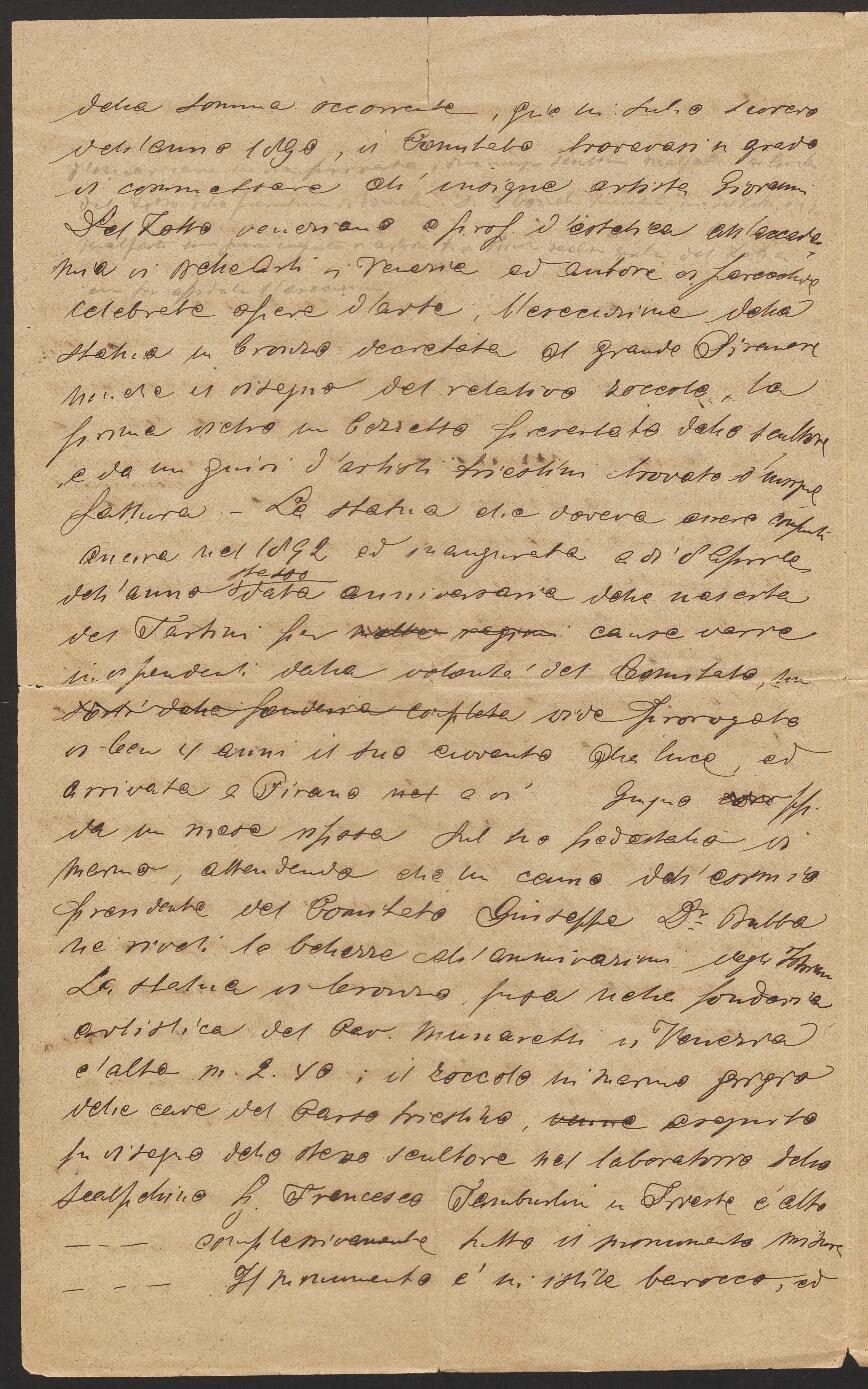 della somma occorrente, già in sulio scorcio
dell'anno 1890, il Comitato trovavasi in grado
di commettere all'insigne artista Giovanni
Dal Zotto veneziano e prof. d'estetica all'accade-
mia di belle Arti di Venezia ed autore di parecchie
celebrate opere d'arte, l'esecuzione della
statua in bronzo decretata al grande Piranese
nonché il disegno del relativo zoccolo, la
prima dietro un bozzetto presentato dallo scultore
e da un giurì d'artisti triestini trovato d'insigne
fattura. – La statua che doveva essere compiuta
ancora nel 1892 ed inaugurata addì 8 Aprile
dell'anno stesso data anniversaria della nascita
del Tartini per molte ragioni cause varie
indipendenti dalla volontà del Comitato,
sortì dalla fonderia completa vide prorogato
di ben 4 anni il suo avvento alla luce, ed
arrivata a Pirano nel a dì Giugno pp.
da un mese riposa sul suo piedestallo di
marmo, attendendo che un cenno dell'esimio
presidente del Comitato Giuseppe Dr. Bubba
ne riveli le bellezze all'ammirazione degli Istriani
La statua di bronzo, fusa nella fonderia
artistica del Cav. Munaretti di Venezia
è alta m. 2.40; il zoccolo in marmo grigio
delle cave del Carso triestino, venne eseguito
su disegno dello stesso scultore nel laboratorio dello
scalpellino S. Francesco Tamburlin in Trieste è alto
— — – complessivamente tutto il monumento misura
— – — Il monumento è in istile barocco, ed